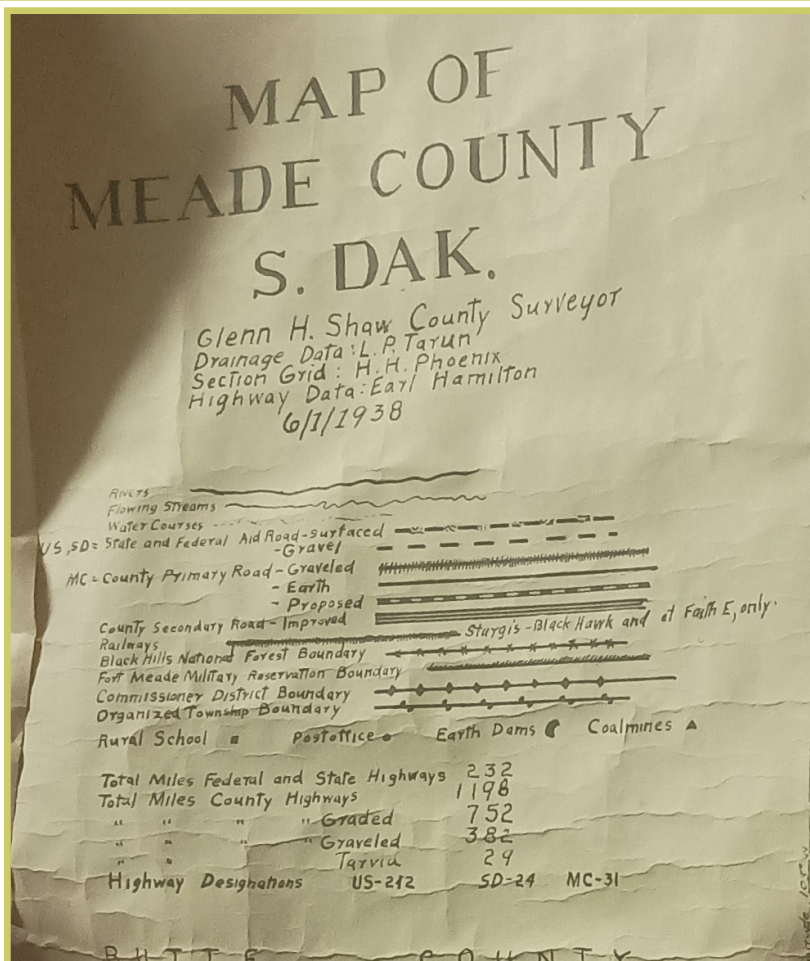 MAP OF
MEADE COUNTY
S. DAK.
Glenn H. Shaw County Surveyor
Drainage Data: L. P. Tarun
Section Grid: H. H. Phoenix
Highway Data: Earl Hamilton
6/1/1938
Rivers
Flowing Streams
Water Courses
US, SD = State and Federal Aid Road-Surfaced
-Gravel
MC = County Primary Road - Graveled
- Earth
- Proposed
County Secondary Road - Improved
Railways Sturgis - Black Hawk and at Faith E, only.
Black Hills National Forest Boundary
Fort Meade Military Reservation Boundary
Commissioner District Boundary
Organized Township Boundary
Rural School Postoffice Earth Dams Coalmines
Total Miles Federal and State Highways 232
Total Miles County Highways 1198
" " " " Graded 752
" " " " Graveled 382
" " Tarvia 29
Highway Designations US-212 SD-24 MC-31
BUTTE COUNTY